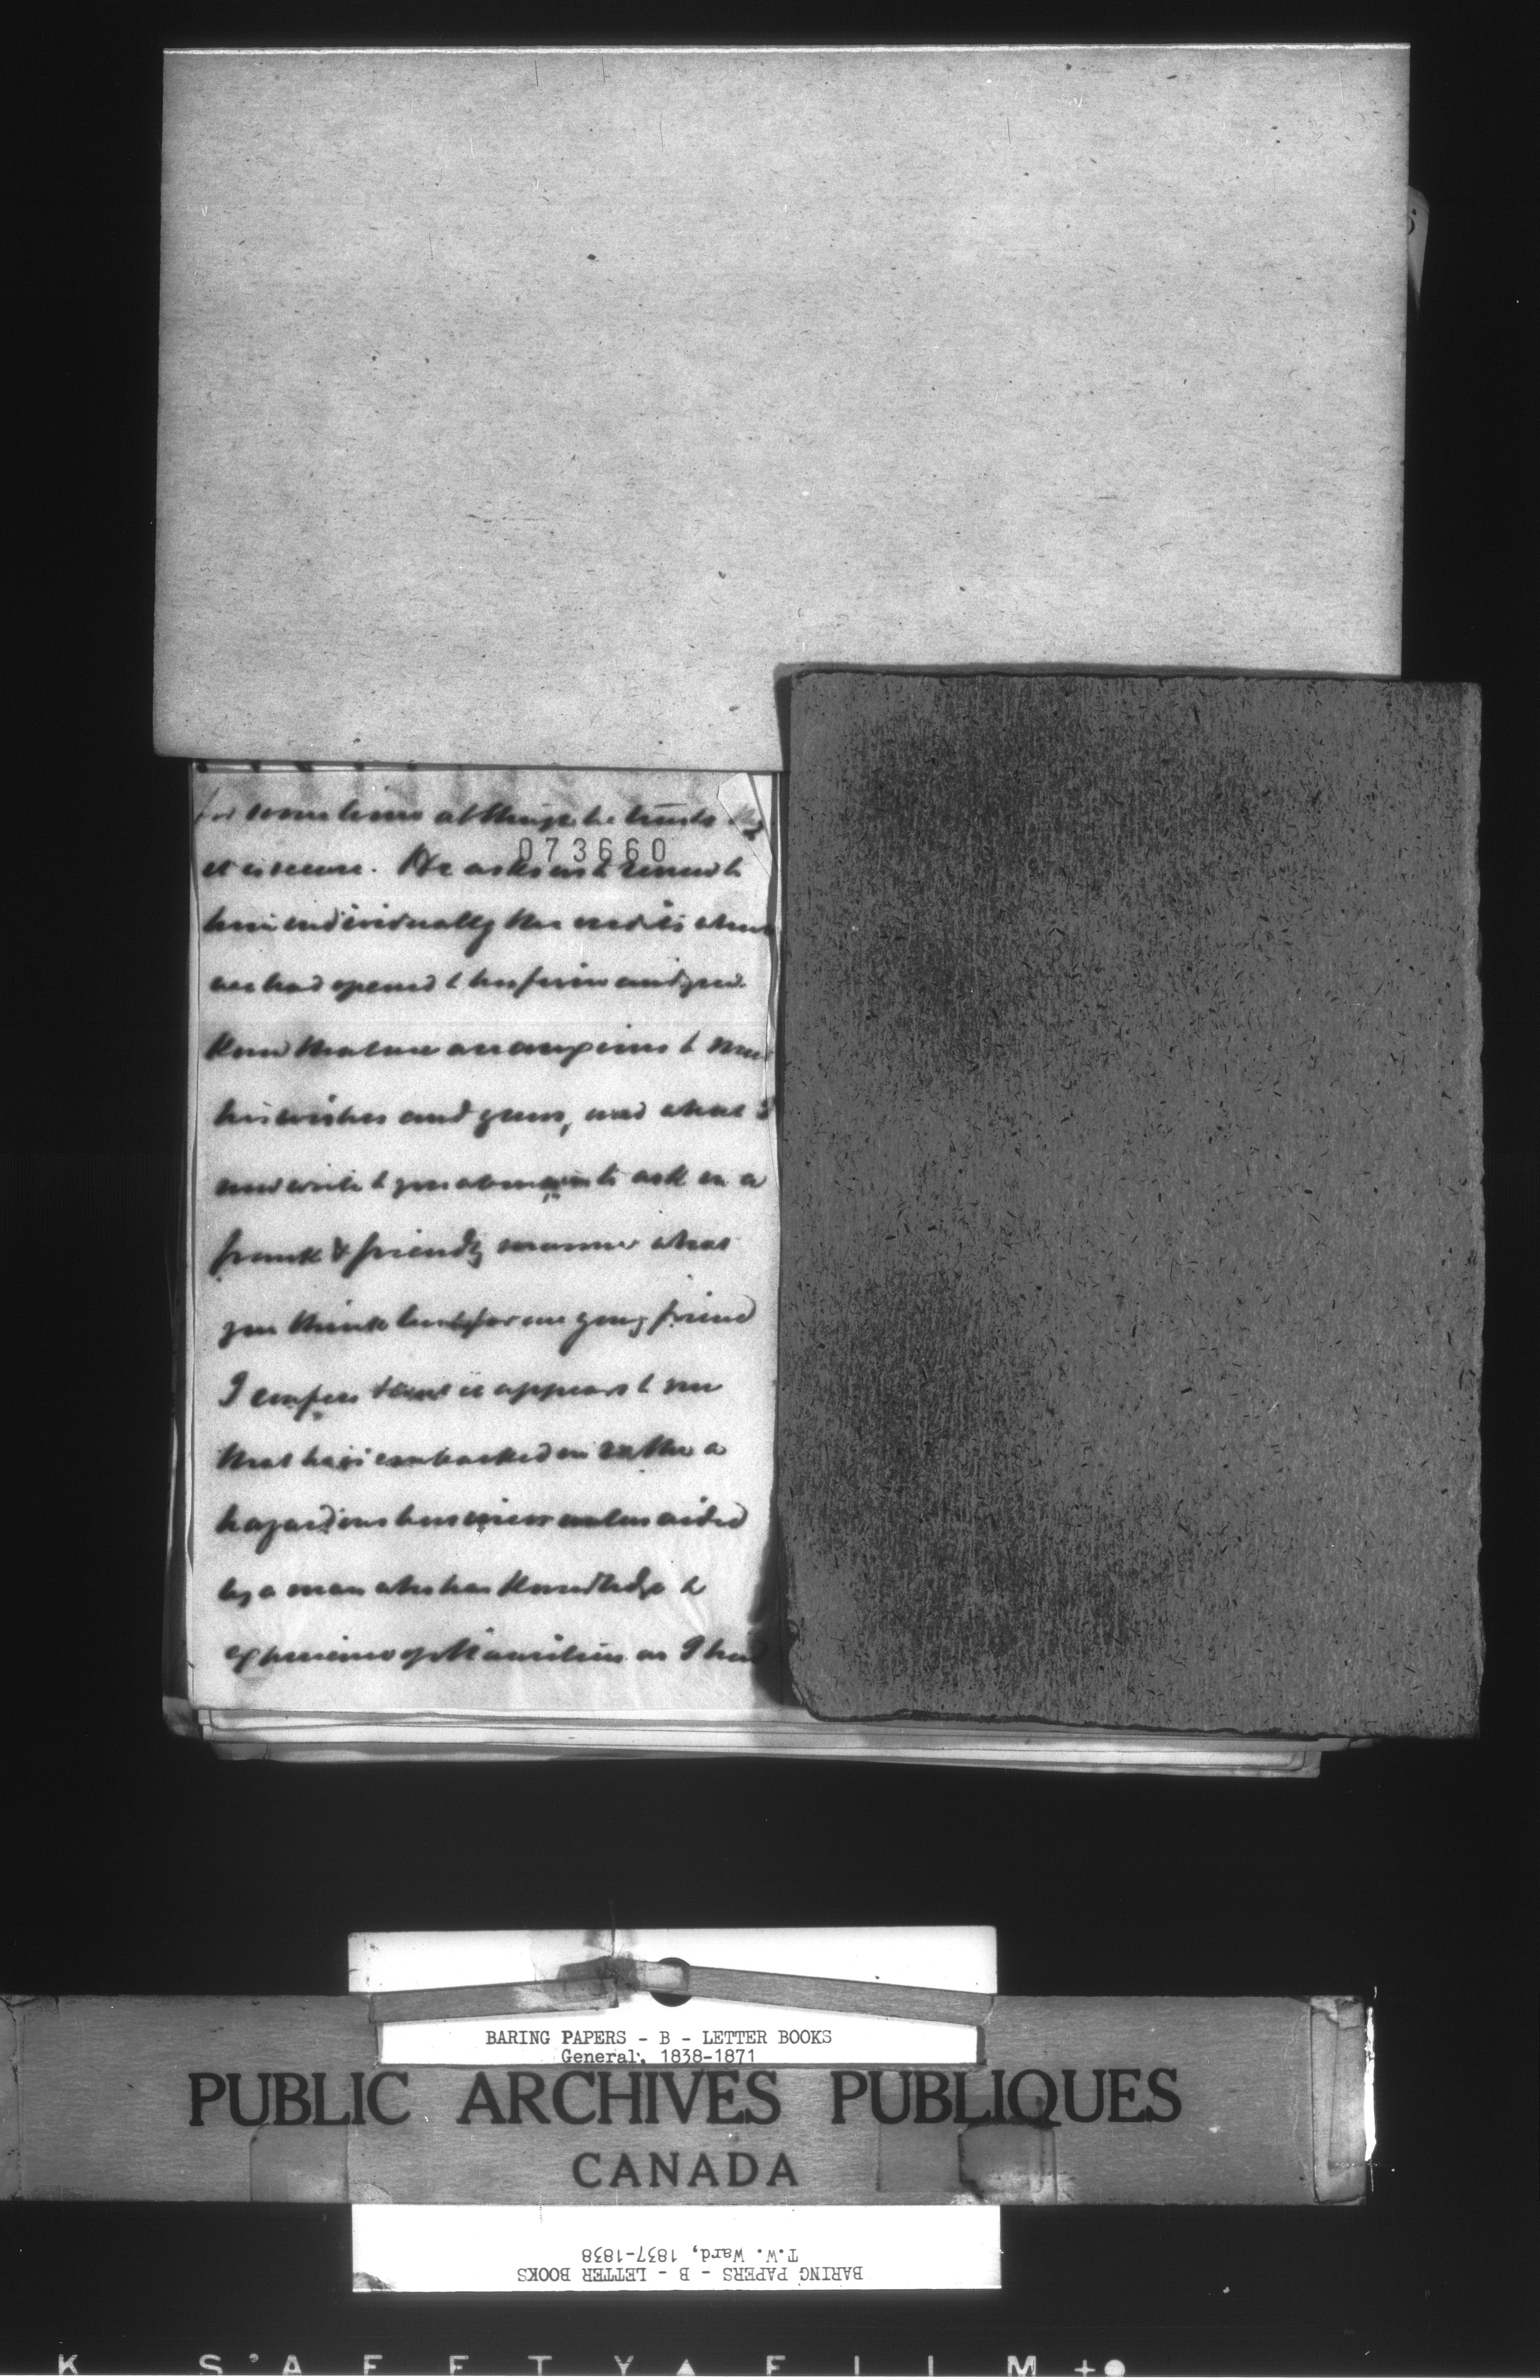 for sometime although he trusts
073660
it is secure. He asks us to renew to
him individually the credits which
we had opened to his firm and you
know that we are anxious to meet
his wishes and yours, and what I
now write to you about is to ask in a
frank & friendly manner what
you think best for our young friend
I confess that it appears to me
that he is embarked in rather a
hazardous business unless aided
by a man who has knowledge &
experience of Mauritius as I have
BARING PAPERS - B - LETTER BOOKS
General, 1838-1871
PUBLIC ARCHIVES PUBLIQUES
CANADA
BARING PAPERS - B - LETTER BOOKS
T.W. Ward, 1837-1838
K S'AFETY▲FILM+●